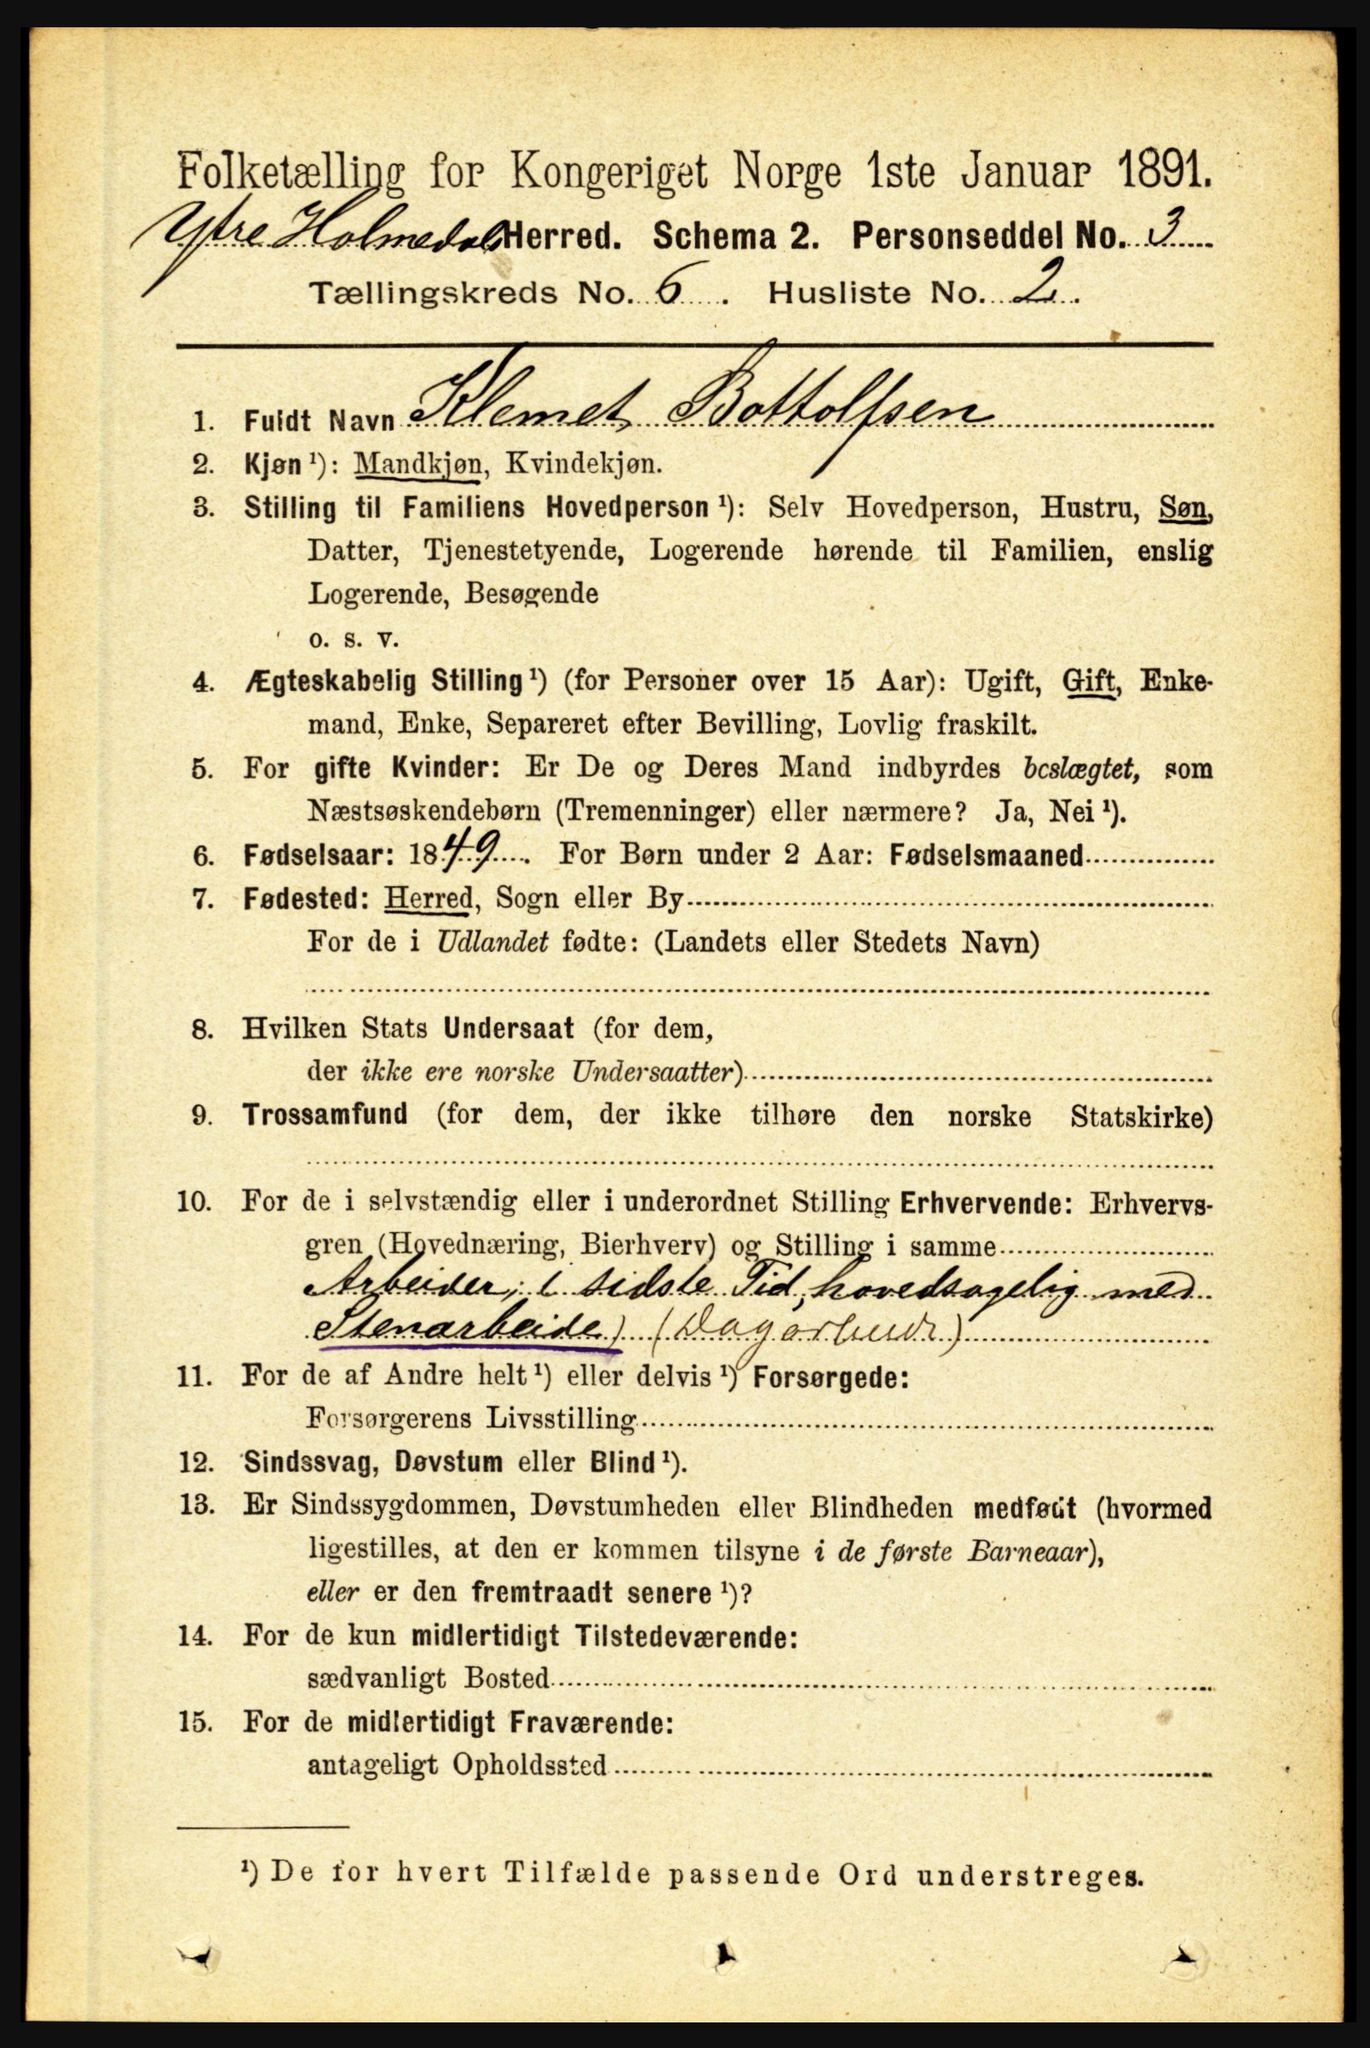 Folketælling for Kongeriget Norge 1ste Januar 1891.
Ytre Holmedal Herred. Schema 2. Personseddel No. 3
Tællingskreds No. 6. Husliste No. 2.
1. Fuldt Navn Klemet Bottolfsen
2. Kjøn ¹): Mandkjøn, Kvindekjøn.
3. Stilling til Familiens Hovedperson ¹): Selv Hovedperson, Hustru, Søn,
Datter, Tjenestetyende, Logerende hørende til Familien, enslig
Logerende, Besøgende
o. s. v.
4. Ægteskabelig Stilling ¹) (for Personer over 15 Aar): Ugift, Gift, Enke-
mand, Enke, Separeret efter Bevilling, Lovlig fraskilt.
5. For gifte Kvinder: Er De og Deres Mand indbyrdes beslægtet, som
Næstsøskendebørn (Tremenninger) eller nærmere? Ja, Nei ¹).
6. Fødselsaar: 1849. For Børn under 2 Aar: Fødselsmaaned
7. Fødested: Herred, Sogn eller By
For de i Udlandet fødte: (Landets eller Stedets Navn)
8. Hvilken Stats Undersaat (for dem,
der ikke ere norske Undersaatter)
9. Trossamfund (for dem, der ikke tilhøre den norske Statskirke)
10. For de i selvstændig eller i underordnet Stilling Erhvervende: Erhvervs-
gren (Hovednæring, Bierhverv) og Stilling i samme
Arbeider, i sidste Tid, hovedsagelig med
Stenarbeide) (Dagarbeidr)
11. For de af Andre helt ¹) eller delvis ¹) Forsørgede:
Forsørgerens Livsstilling
12. Sindssvag, Døvstum eller Blind ¹).
13. Er Sindssygdommen, Døvstumheden eller Blindheden medfødt (hvormed
ligestilles, at den er kommen tilsyne i de første Barneaar),
eller er den fremtraadt senere ¹)?
14. For de kun midlertidigt Tilstedeværende:
sædvanligt Bosted
15. For de midlertidigt Fraværende:
antageligt Opholdssted
¹) De for hvert Tilfælde passende Ord understreges.